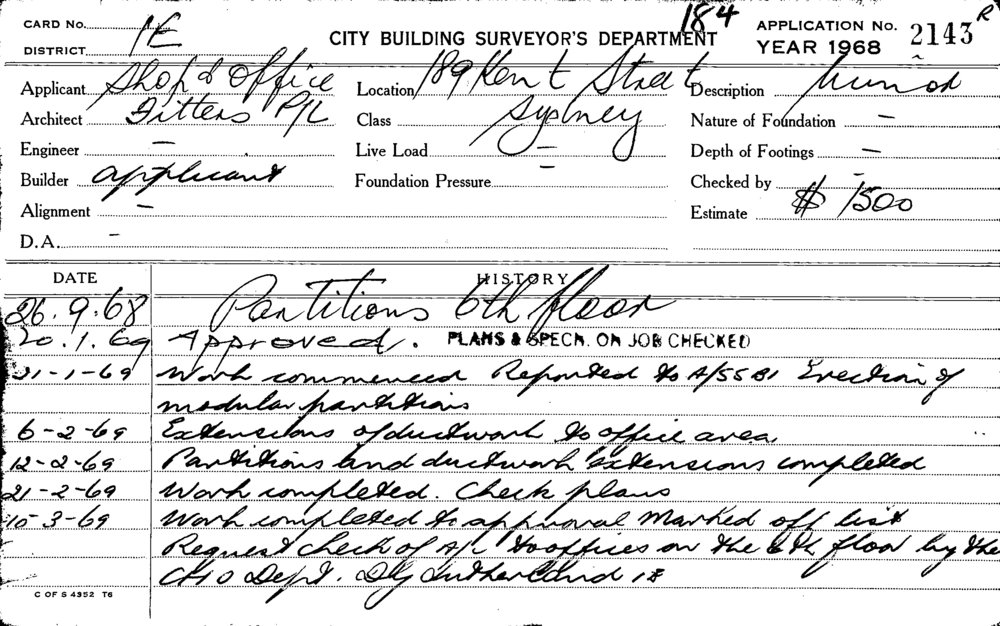 CARD No. 1E
DISTRICT
CITY BUILDING SURVEYOR'S DEPARTMENT
184
APPLICATION No. 2143 R
YEAR 1968
Applicant Shop & Office Location 189 Kent Street Description Minor
Architect Fitters P/L Class Sydney Nature of Foundation —
Engineer — Live Load — Depth of Footings —
Builder applicant Foundation Pressure — Checked by —
Alignment — Estimate $ 1500
D.A. —
DATE HISTORY
26.9.68 Partitions 6th floor
20.1.69 Approved. PLANS & SPECN. ON JOB CHECKED
21-1-69 Work commenced Reported to A/SSBI Erection of
modular partitions
6-2-69 Extensions of ductwork to office area
12-2-69 Partitions and ductwork extensions completed
21-2-69 Work completed. Check plans
10-3-69 Work completed to approval Marked off list
Request check of A/C to offices on the 6th floor by the
Dept. Sutherland
C OF S 4352 T6